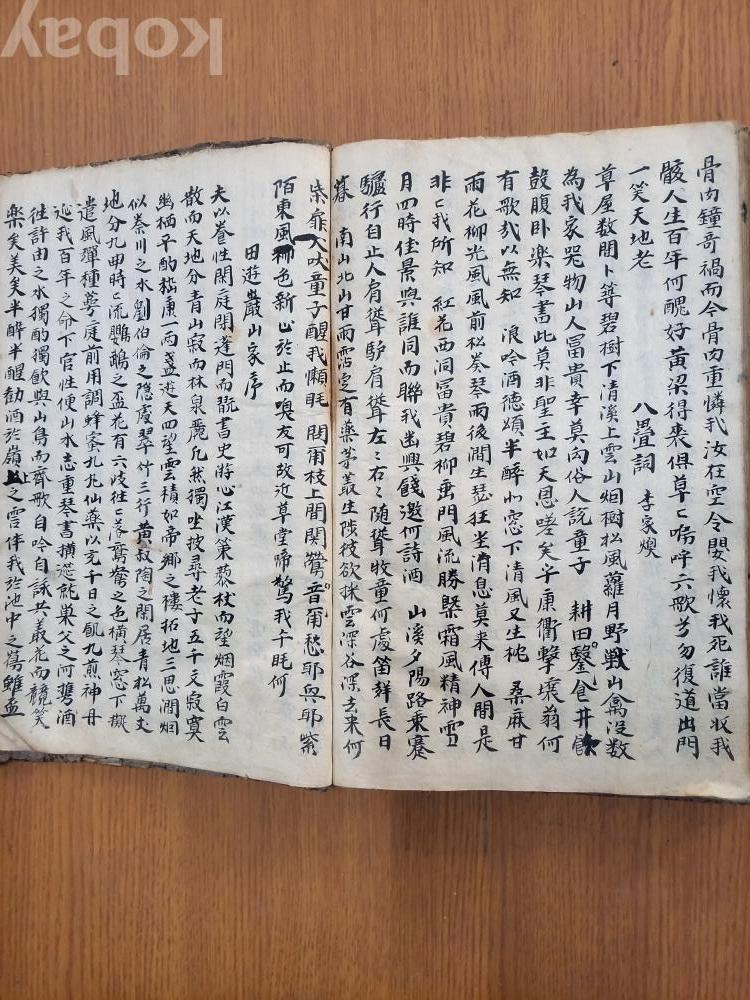 骨肉鐘奇禍而今骨肉重憐我汝在空令嬰我懷我死誰當收我
骸人生百年何醜好黃粱得喪俱草〻嗚呼六歌兮勿復道出門
一笑天地老
八疊詞 李家煥
草屋数間卜築碧樹下清溪上雲山烟樹松風蘿月野戦山禽沒数
為我家哭物山人冨貴幸莫向俗人說童子 耕田鑿食井飲
鼓腹卧樂琴書此莫非聖主如天恩嗟矣乎康衢擊壤翁何
有歌哉以無知 浪吟酒德頌半醉北窓下清風又生枕 桑麻甘
雨花柳光風風前松奏琴雨後澗生瑟狂坐消息莫来傳人間是
非〻我所知 紅花西洞冨貴碧柳垂門風流勝槩霜風精神雪
月四時佳景與誰同而聯我幽興餞邀何詩酒 山溪夕陽路乗蹇
驢行自止人肩聳驴肩聳左〻右〻随聳牧童何處笛群長日
暮 南山北山甘雨霑定有薬芽叢生陟彼欲採雲深谷深去来何
柴扉犬吠童子醒我懶眠閞甫枝上間関鶯音甭愁耶與耶紫
陌東風柳色新止於止而嗅友可故近草堂啼驚我午眠何
田遊巖山家序
夫以養性閑庭閉蓬門而翫書史游心江漢策藜杖而望烟霞白雲
散而天地分青山寂而林泉麗几然獨坐披尋老子五千文寂寞
幽栖平酌嵇康一两盞遊天四望雲積如帝郷之樓拓地三思澗烟
似秦川之水劉伯倫之隠處翠竹三行黄叔陶之閑居青松萬丈
地分九甲時〻流鸚鵡之盃花有六歧徃〻落鴛鴦之色橫琴窓下擬
遣風蟬種蕚庭前用調蜂蜜九九仙藥以充千日之飢九煎神丹
延我百年之命下官性便山水志重琴書擯逰託巣父之河携酒
徃許由之水獨酌獨飲與山鳥而齊歌自吟自詠共叢花而競笑
樂矣美矣半酔半醒勧酒於嶺上之雲伴我於池中之萬雖盃
Kobay